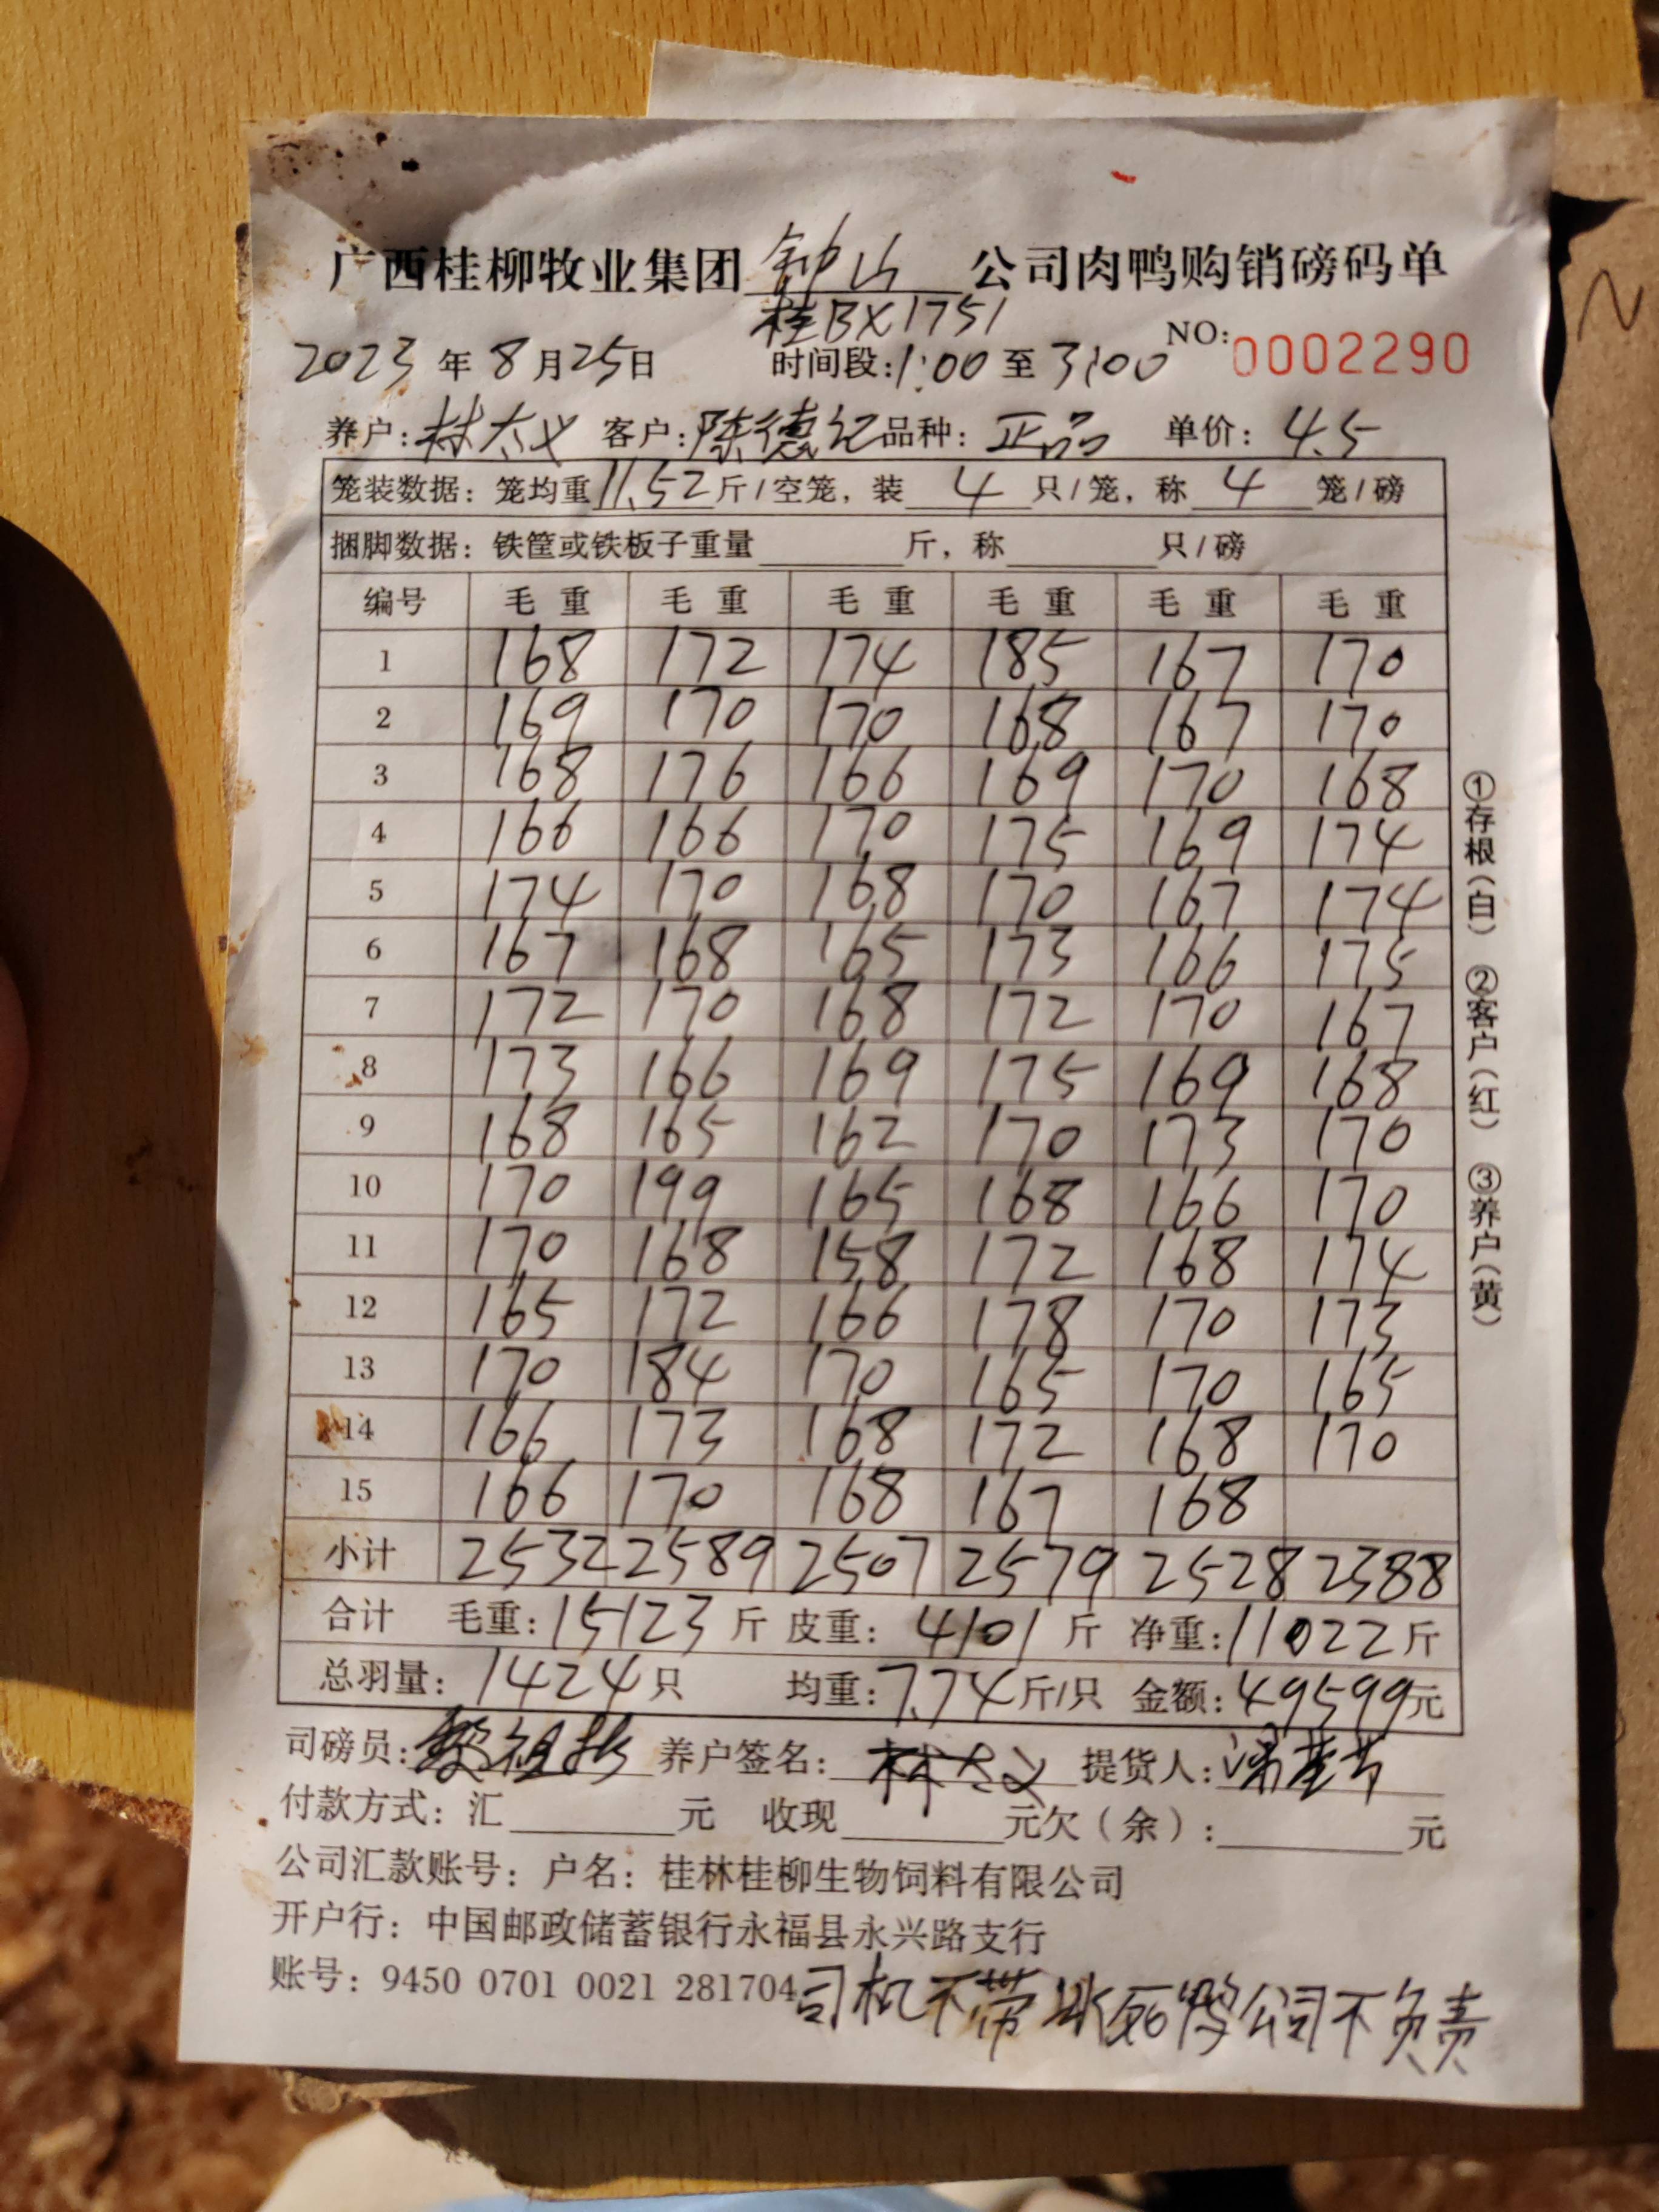 广西桂柳牧业集团 钟山 公司肉鸭购销磅码单
桂BX1751
NO: 0002290
2023 年 8 月 25 日 时间段: 1:00 至 3:00
养户: 林太义 客户: 陈德纪 品种: 正品 单价: 4.5
笼装数据: 笼均重 11.52 斤/空笼, 装 4 只/笼, 称 4 笼/磅
捆脚数据: 铁筐或铁板子重量 斤, 称 只/磅
编号 毛重 毛重 毛重 毛重 毛重 毛重
1 168 172 174 185 167 170
2 169 170 170 168 167 170
3 168 176 166 169 170 168
4 166 166 170 175 169 174
5 174 170 168 170 167 174
6 167 168 165 173 166 175
7 172 170 168 172 170 167
8 173 166 169 175 169 168
9 168 165 162 170 173 170
10 170 199 165 168 166 170
11 170 168 158 172 168 174
12 165 172 166 178 170 173
13 170 184 170 165 170 165
14 166 173 168 172 168 170
15 166 170 168 167 168
小计 2532 2589 2507 2579 2528 2388
合计 毛重: 15123 斤 皮重: 4101 斤 净重: 11022 斤
总羽量: 1424 只 均重: 7.74 斤/只 金额: 49599 元
司磅员: 养户签名: 林太义 提货人:
付款方式: 汇 元 收现 元欠(余): 元
公司汇款账号: 户名: 桂林桂柳生物饲料有限公司
开户行: 中国邮政储蓄银行永福县永兴路支行
账号: 9450 0701 0021 281704
司机不带冰死鸭公司不负责
①存根(白) ②客户(红) ③养户(黄)
N